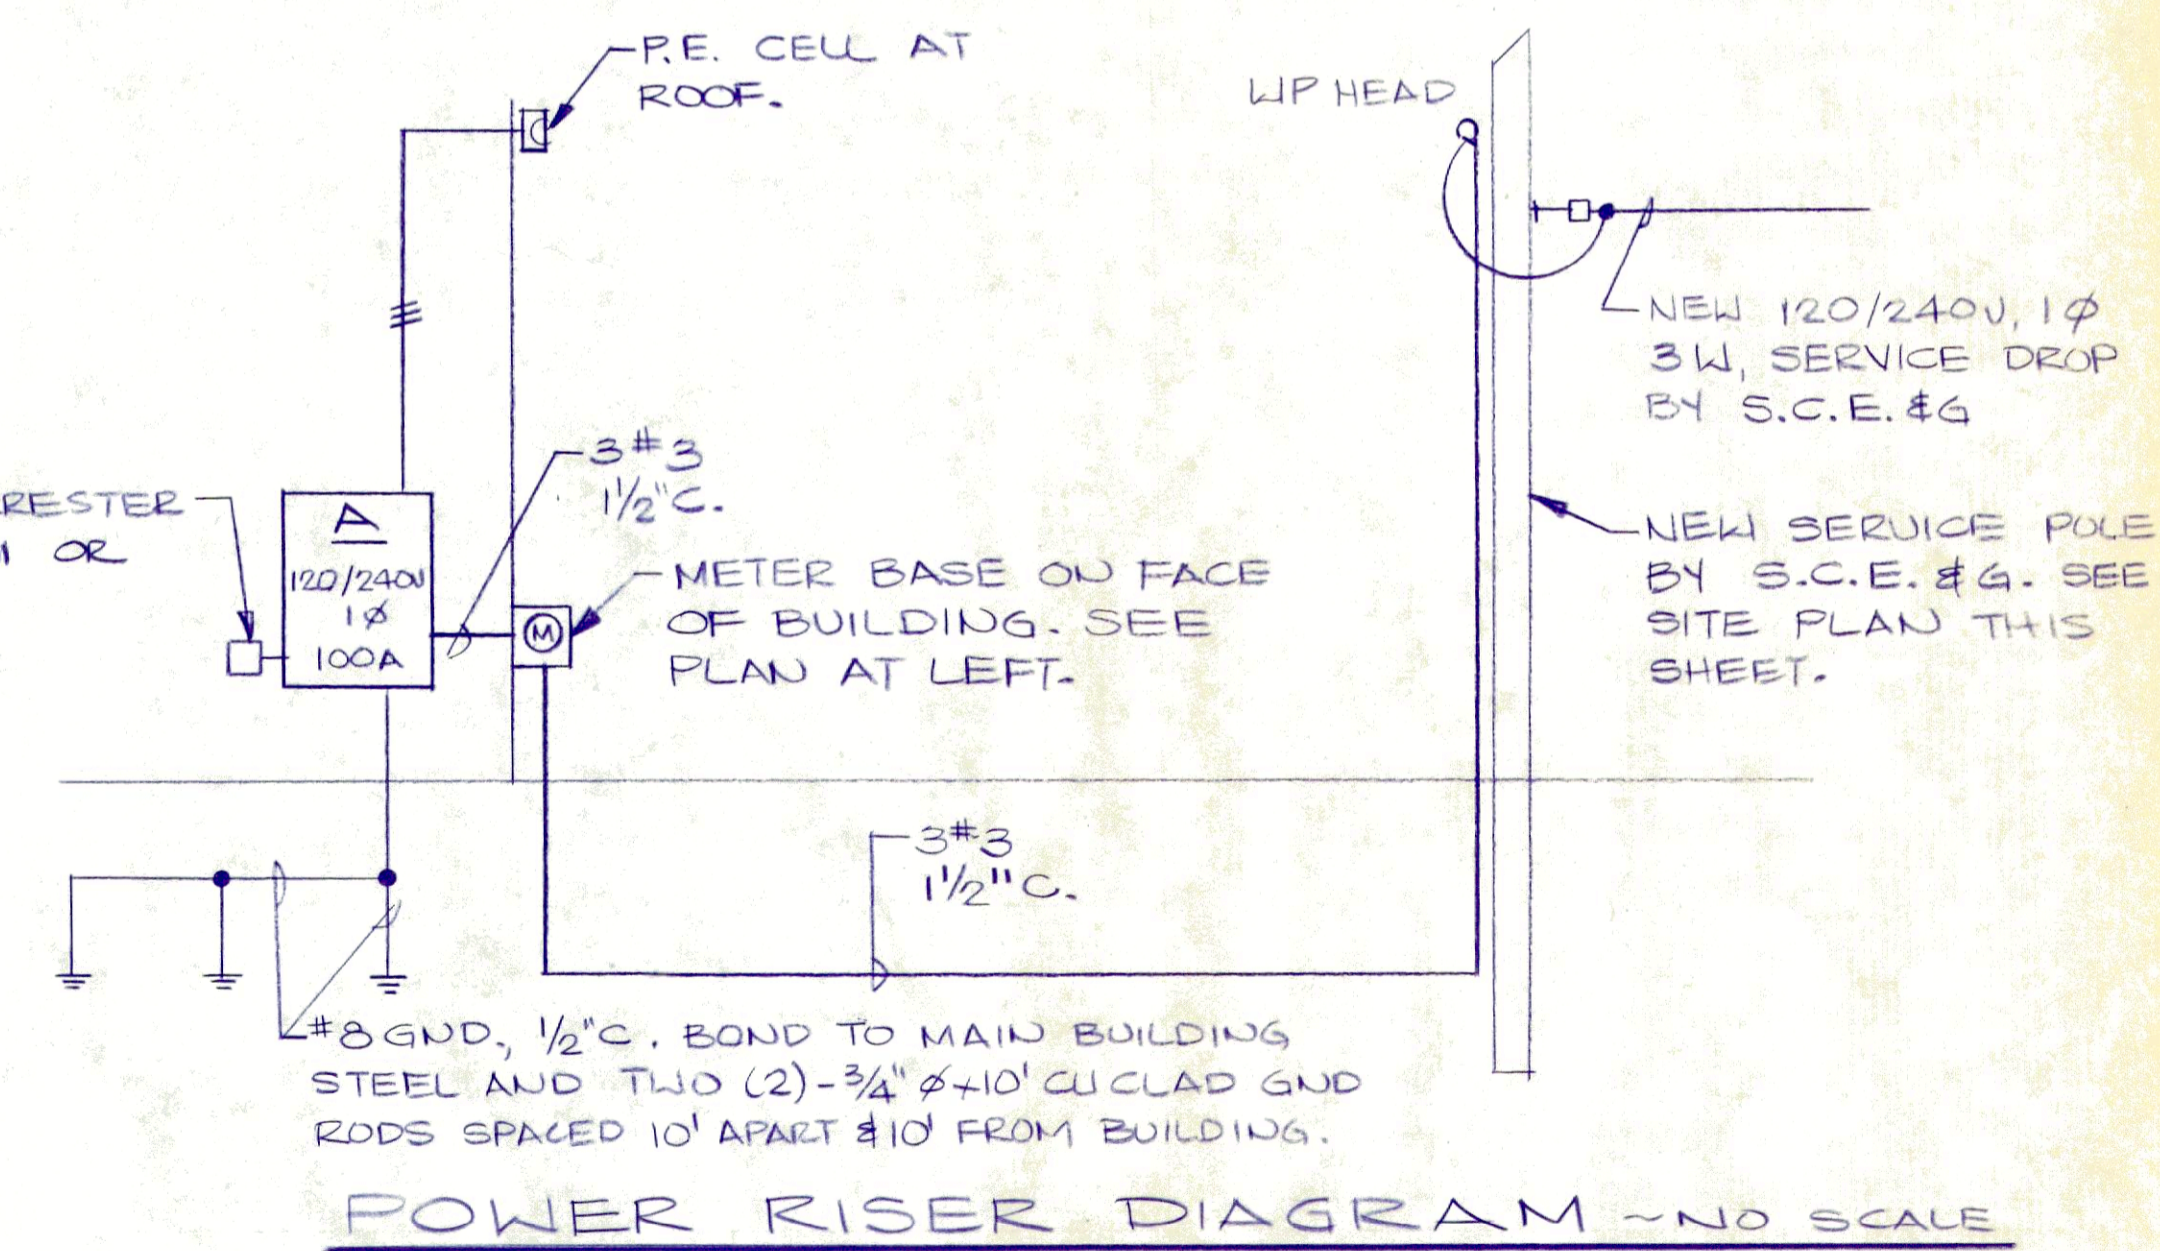 P.E. CELL AT
ROOF.
W/P HEAD
NEW 120/240V, 1Ø
3W, SERVICE DROP
BY S.C.E. &G
3#3
1½"C.
RESTER
OR
A
120/240V
1Ø
100A
M
METER BASE ON FACE
OF BUILDING. SEE
PLAN AT LEFT.
NEW SERVICE POLE
BY S.C.E. &G. SEE
SITE PLAN THIS
SHEET.
3#3
1½"C.
#8 GND., ½"C. BOND TO MAIN BUILDING
STEEL AND TWO (2)-¾"Ø×10' CU CLAD GND
RODS SPACED 10' APART &10' FROM BUILDING.
POWER RISER DIAGRAM ~NO SCALE